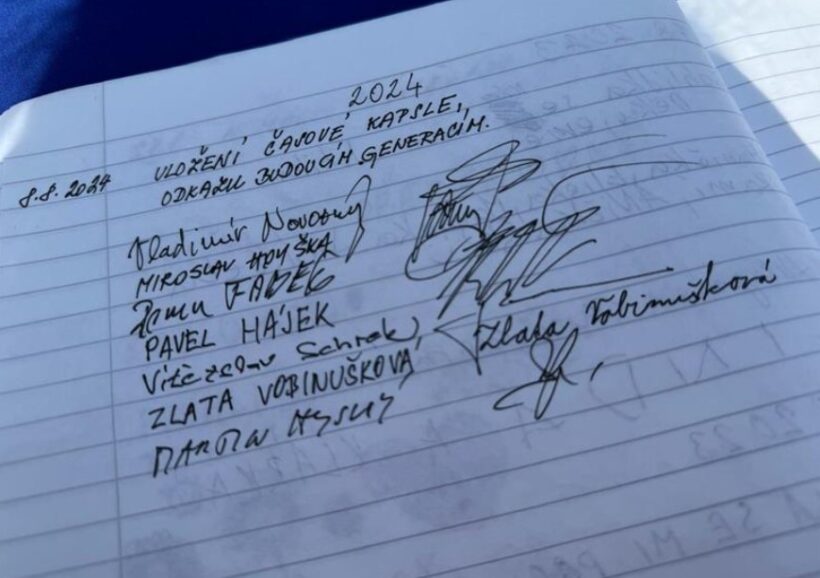 2024
8.8. 2024 ULOŽENÍ ČASOVÉ KAPSLE,
ODKAZU BUDOUCÍM GENERACÍM.
Vladimír Novotný
MIROSLAV
PAVEL HÁJEK
Vítězslav Schrek
ZLATA VOBINUŠKOVÁ Zlata Vobinušková
MARTIN HYSKÝ